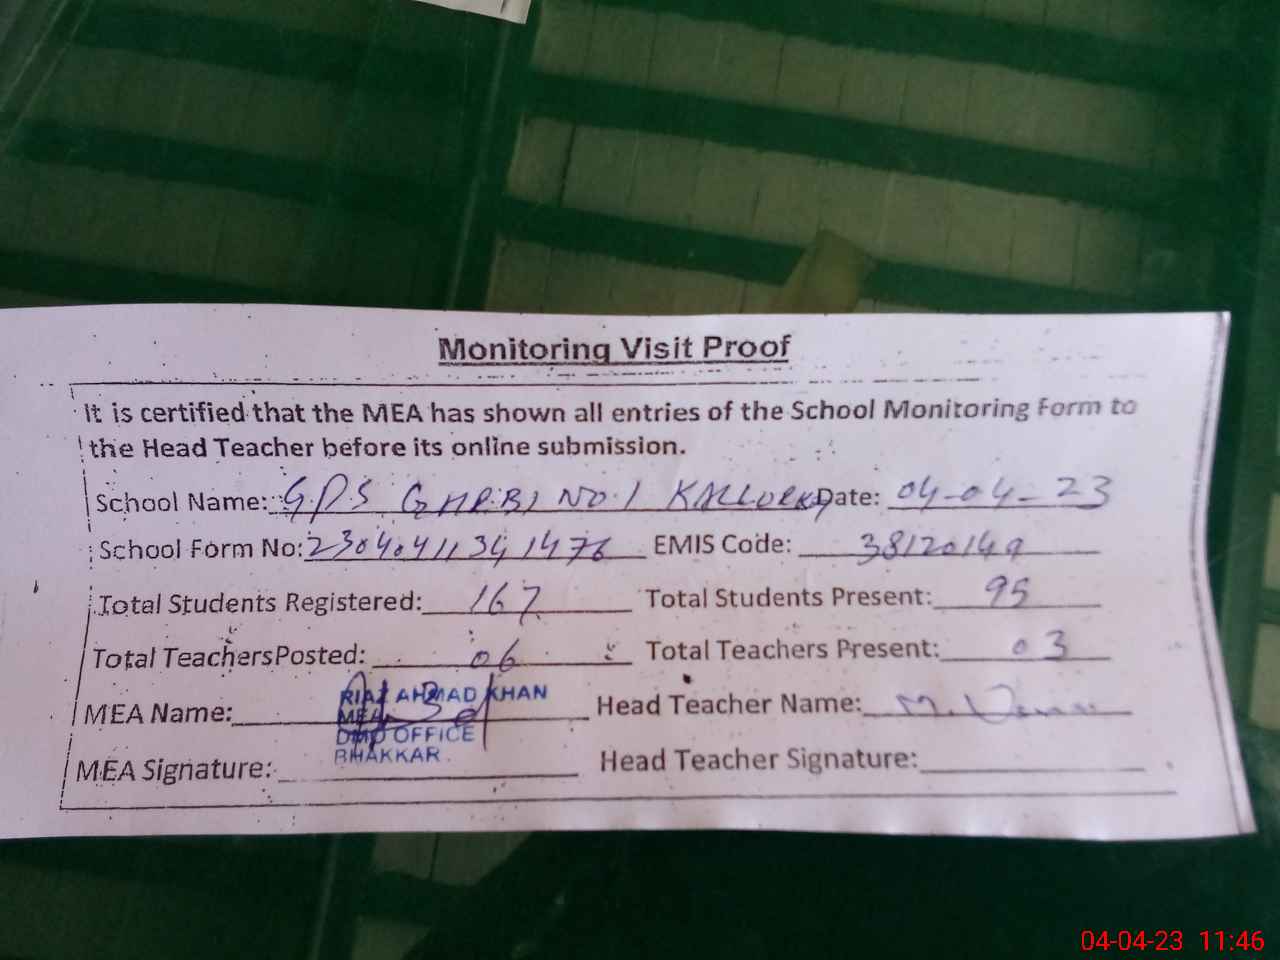 Monitoring Visit Proof
It is certified that the MEA has shown all entries of the School Monitoring Form to
the Head Teacher before its online submission.
School Name: GPS GHARBI NO.1 KALLURKOT Date: 04-04-23
School Form No: 23040411341476 EMIS Code: 38120149
Total Students Registered: 167 Total Students Present: 95
Total Teachers Posted: 06 Total Teachers Present: 03
MEA Name: RIAZ AHMAD KHAN Head Teacher Name: M.
MEA
DMO OFFICE
BHAKKAR
MEA Signature: Head Teacher Signature:
04-04-23 11:46